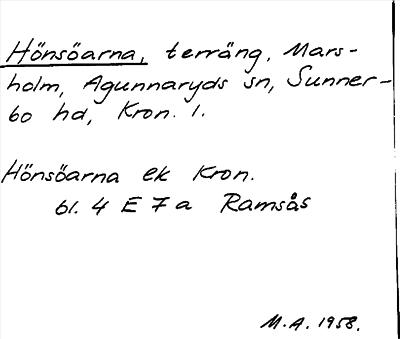 Hönsöarna, terräng, Mars-
holm, Agunnaryds sn, Sunner-
bo hd, Kron. l.
Hönsöarna ek Kron.
bl. 4 E 7 a Ramsås
M.A. 1958.